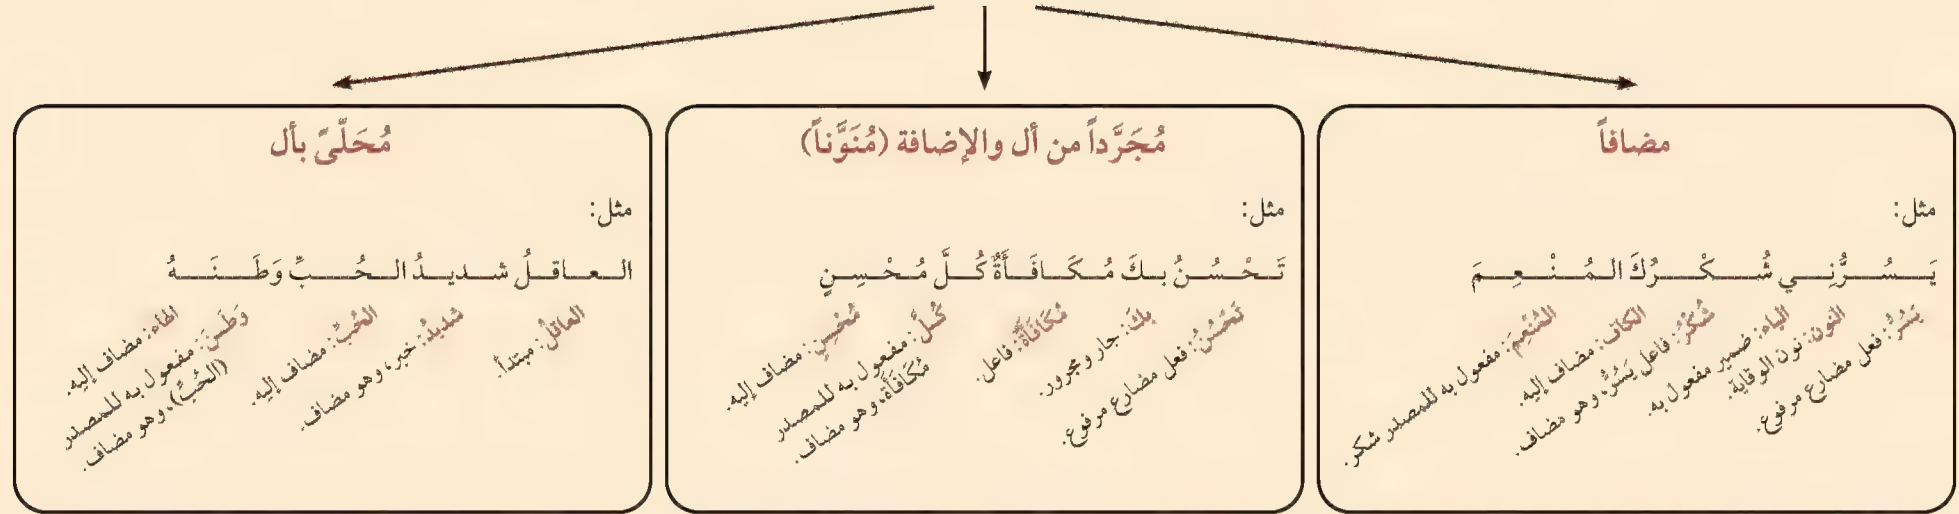 مضافاً
مثل:
يَـسُـرُّنِـي شُـكْـرُكَ الـمُـنْـعِـمَ
يَسُرُّ: فعل مضارع مرفوع.
النون: نون الوقاية.
الياء: ضمير مفعول به.
شُكْرُ: فاعل يَسُرُّ، وهو مضاف.
الكاف: مضاف إليه.
المُنْعِمَ: مفعول به للمصدر شكر.
مُجَرَّداً من أل والإضافة (مُنَوَّناً)
مثل:
تَـحْـسُـنُ بـكَ مُـكَـافَـأَةٌ كُـلَّ مُـحْـسِـنٍ
تَحْسُنُ: فعل مضارع مرفوع.
بكَ: جار ومجرور.
مُكَافَأَةٌ: فاعل.
كُلَّ: مفعول به للمصدر
مُكَافَأَة، وهو مضاف.
مُحْسِنٍ: مضاف إليه.
مُحَلّىً بأل
مثل:
الـعـاقـلُ شـديـدُ الـحُـبِّ وَطَـنَـهُ
العاقلُ: مبتدأ.
شديدُ: خبر، وهو مضاف.
الحُبِّ: مضاف إليه.
وَطَنَ: مفعول به للمصدر
(الحُبِّ)، وهو مضاف.
الهاء: مضاف إليه.